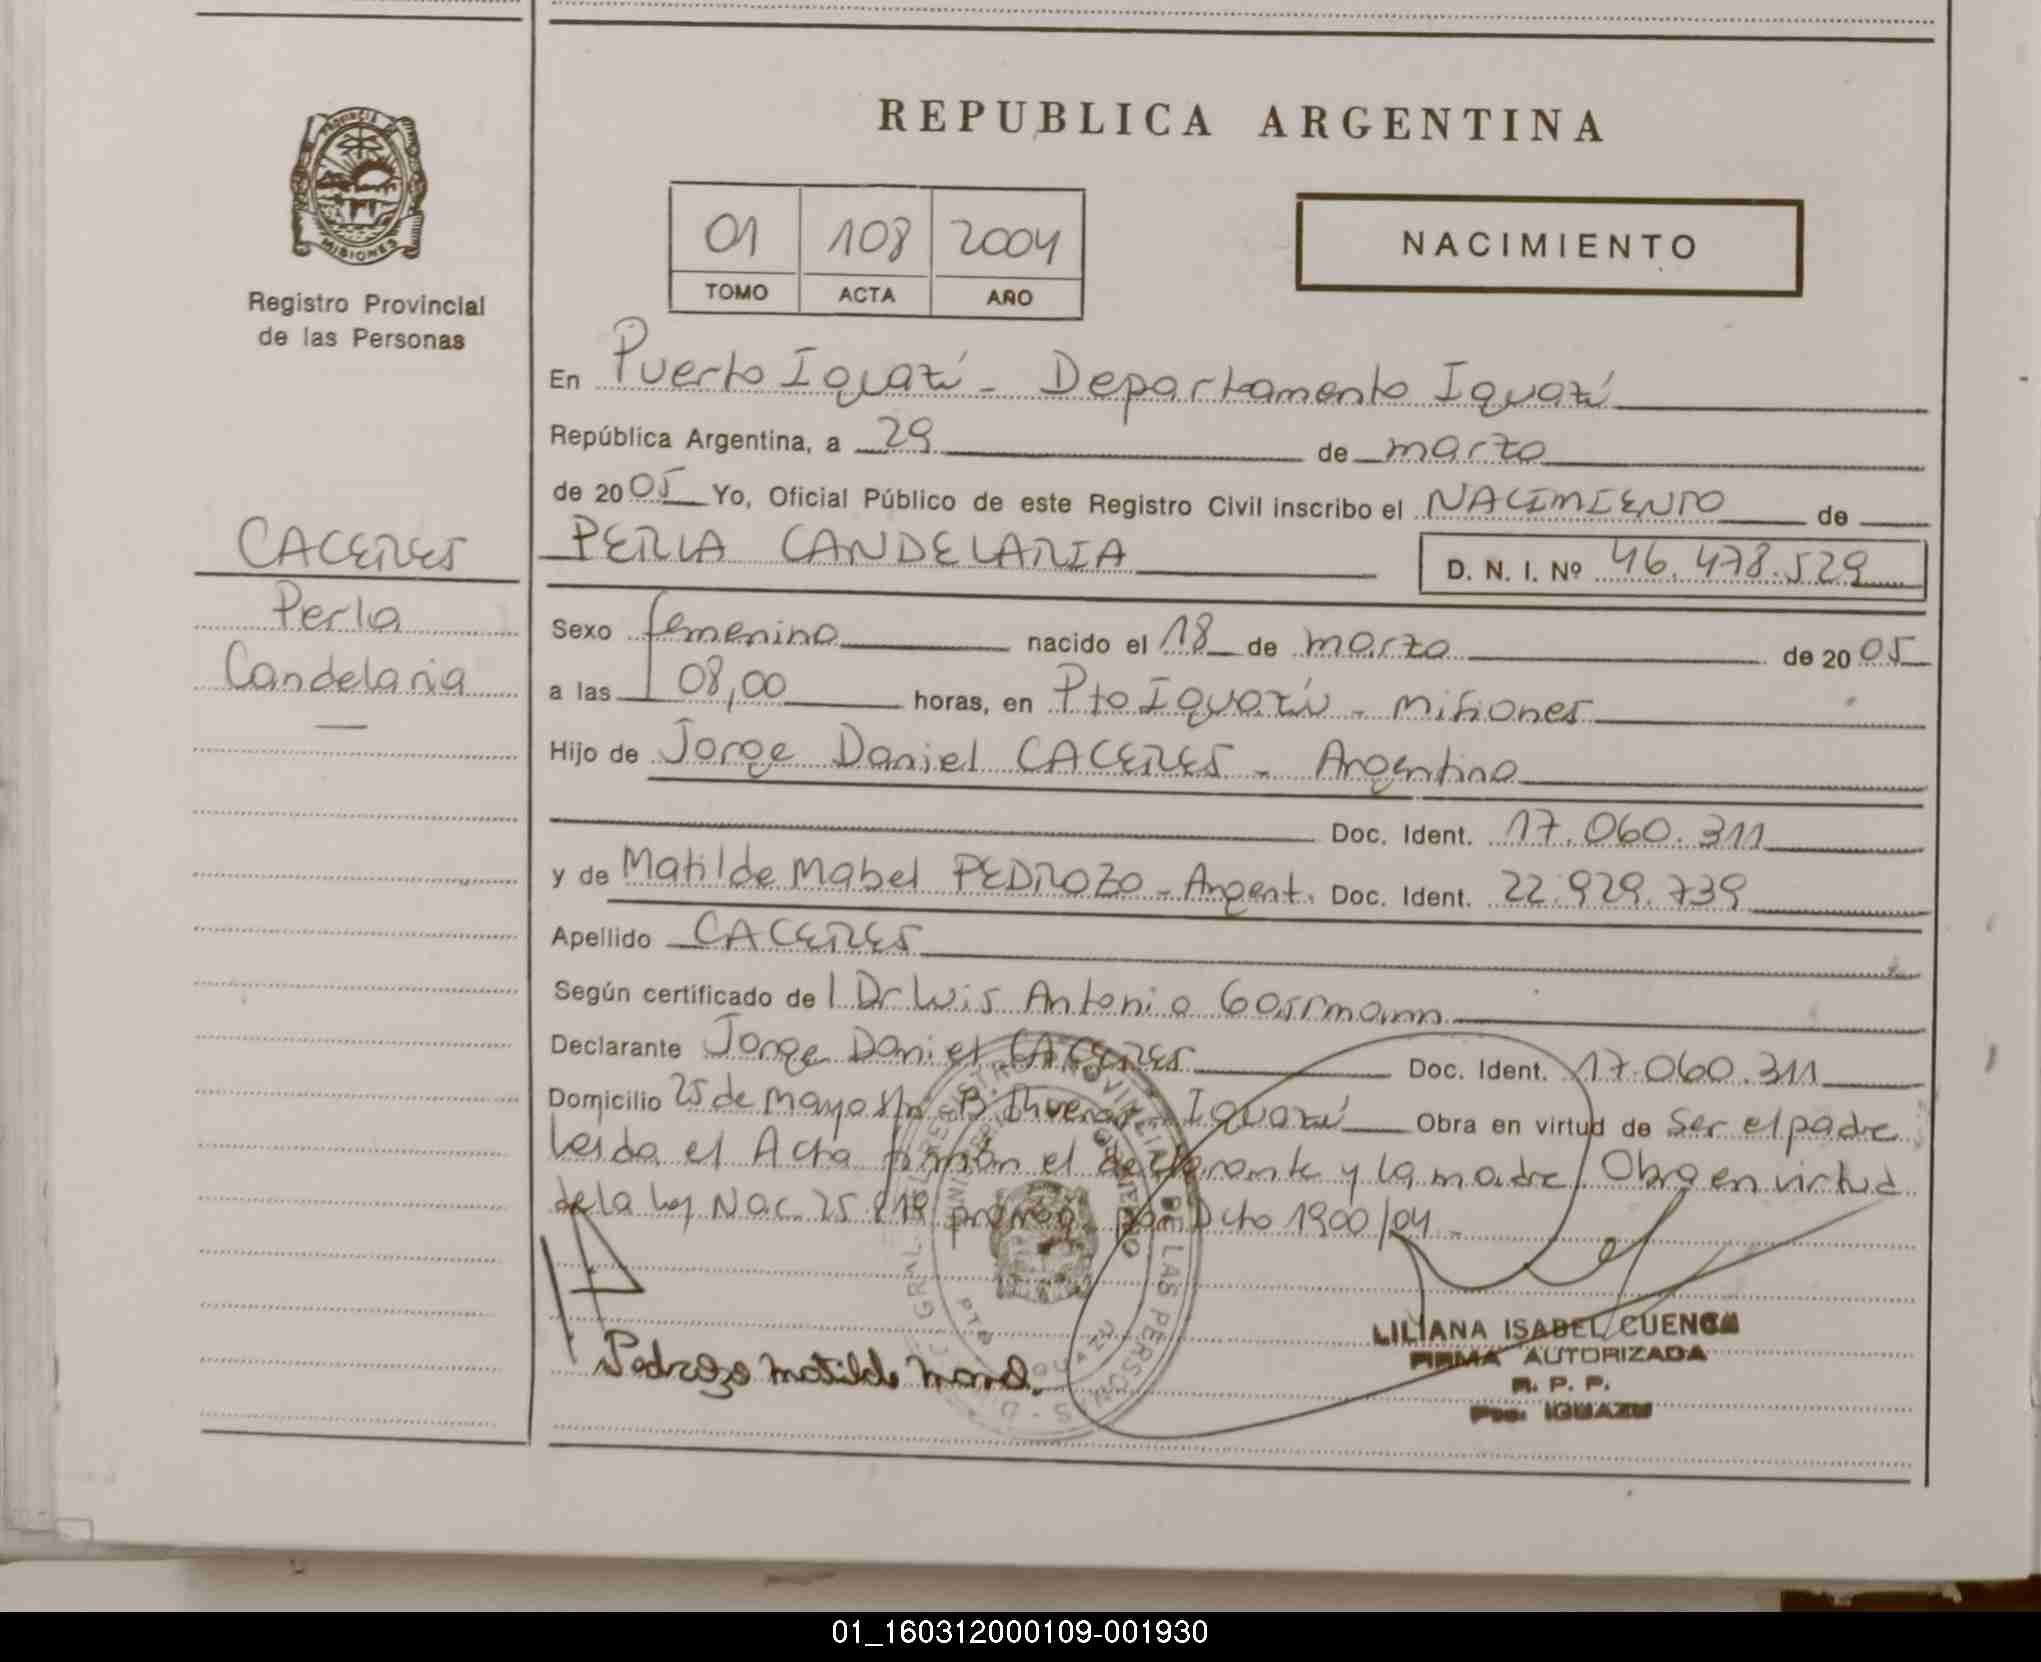 REPUBLICA ARGENTINA
PROVINCIA
MISIONES
Registro Provincial
de las Personas
01 108 2004
TOMO ACTA AÑO
NACIMIENTO
En Puerto Iguazú - Departamento Iguazú
República Argentina, a 29 de marzo
de 2005 Yo, Oficial Público de este Registro Civil inscribo el NACIMIENTO de
CACERES
PERLA CANDELARIA D. N. I. Nº 46.478.529
Perla
Sexo femenino nacido el 18 de marzo de 2005
Candelaria
a las 08,00 horas, en Pto Iguazú - Misiones
Hijo de Jorge Daniel CACERES - Argentino
Doc. Ident. 17.060.311
y de Matilde Mabel PEDROZO - Argent. Doc. Ident. 22.929.739
Apellido CACERES
Según certificado del Dr Luis Antonio
Declarante Jorge Daniel CACERES Doc. Ident. 17.060.311
Domicilio 25 de Mayo s/n B Iguazú Obra en virtud de Ser el padre
Leida el Acta firman el declarante y la madre. Obra en virtud
de la Ley Nac. 25.819 por Dcto 1900/04 -
Pedrozo Matilde
LILIANA ISABEL CUENCA
FIRMA AUTORIZADA
R. P. P.
Pto. IGUAZU
01_160312000109-001930